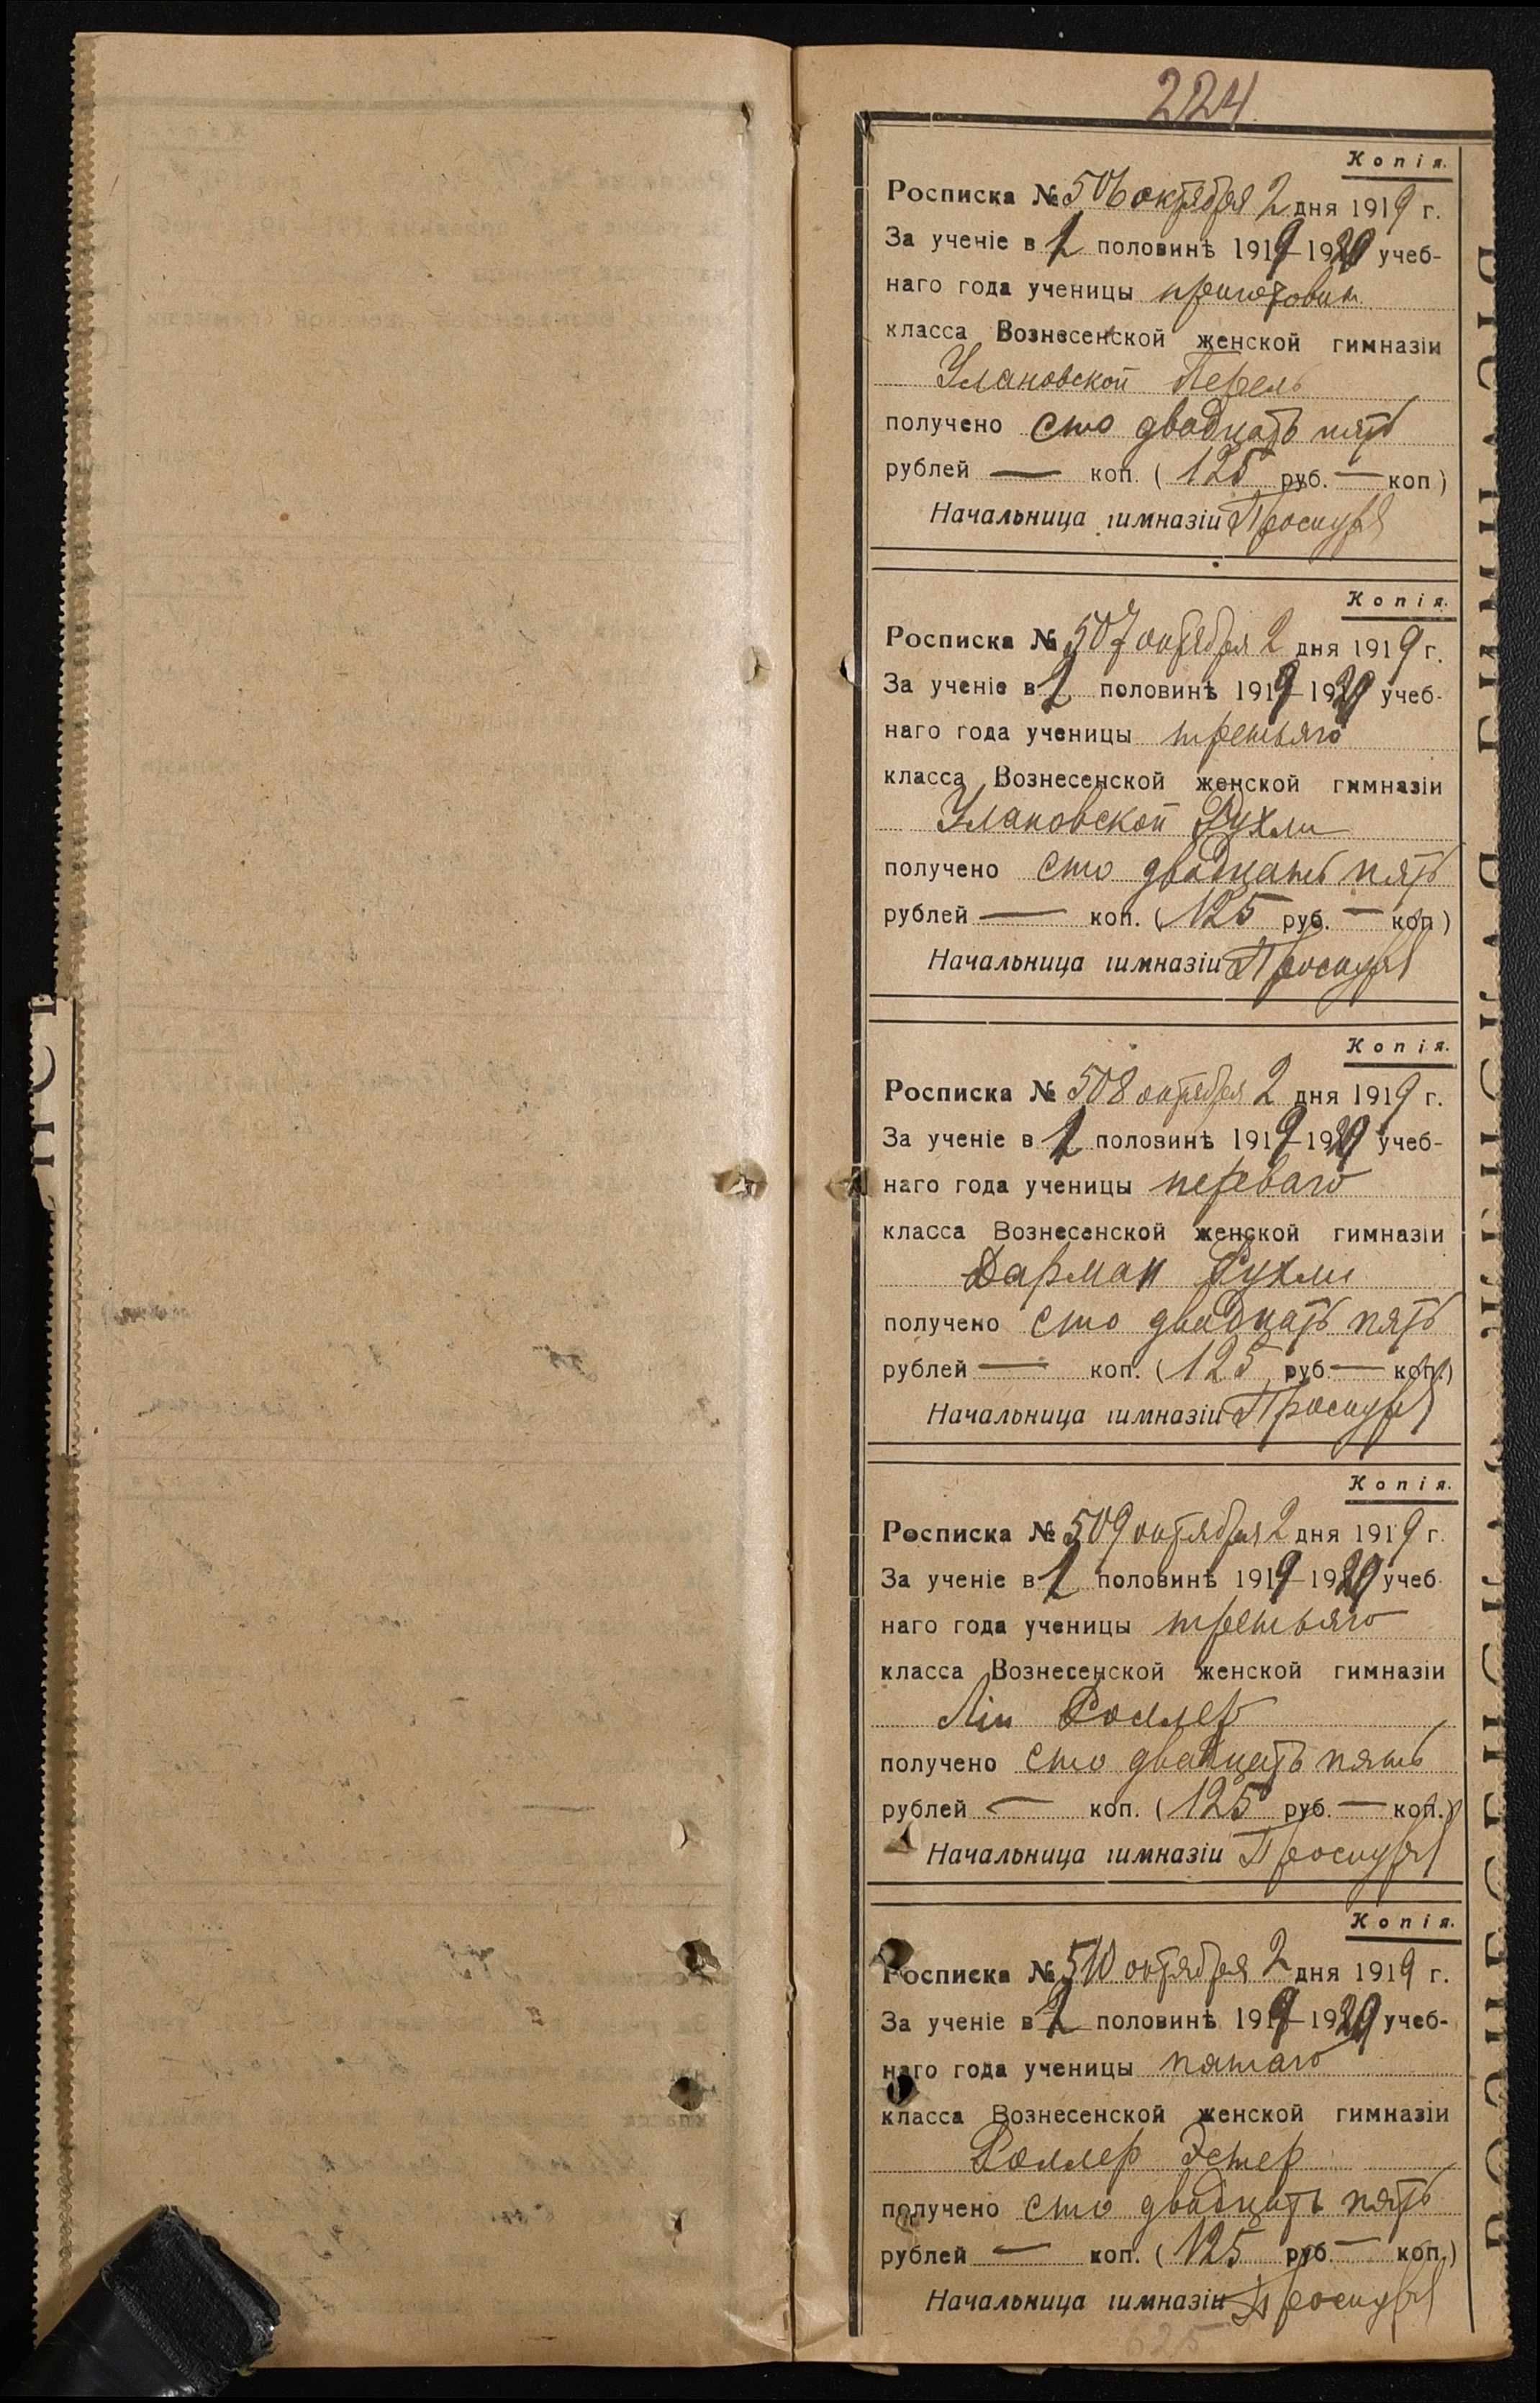 224
Копія.
Росписка № 506 октября 2 дня 1919 г.
За ученіе в 1 половинѣ 1919–1920 учеб-
наго года ученицы приготовит.
класса Вознесенской женской гимназіи
Улановской Перель
получено сто двадцать пять
рублей — коп. (125 руб. — коп)
Начальница гимназіи
Копія.
Росписка № 507 октября 2 дня 1919 г.
За ученіе в 1 половинѣ 1919–1920 учеб-
наго года ученицы третьяго
класса Вознесенской женской гимназіи
Улановской Рухли
получено сто двадцать пять
рублей — коп. (125 руб. — коп)
Начальница гимназіи
Копія.
Росписка № 508 октября 2 дня 1919 г.
За ученіе в 1 половинѣ 1919–1920 учеб-
наго года ученицы перваго
класса Вознесенской женской гимназіи
Дарман Рухли
получено сто двадцать пять
рублей — коп. (125 руб — коп.)
Начальница гимназіи
Копія.
Росписка № 509 октября 2 дня 1919 г.
За ученіе в 1 половинѣ 1919–1920 учеб
наго года ученицы третьяго
класса Вознесенской женской гимназіи
Ліи Роллер
получено сто двадцать пять
рублей — коп. (125 руб. — коп.)
Начальница гимназіи
Копія.
Росписка № 510 октября 2 дня 1919 г.
За ученіе в 1 половинѣ 1919–1920 учеб-
наго года ученицы пятаго
класса Вознесенской женской гимназіи
Роллер Эстер
получено сто двадцать пять
рублей — коп. (125 руб. — коп.)
Начальница гимназіи
625